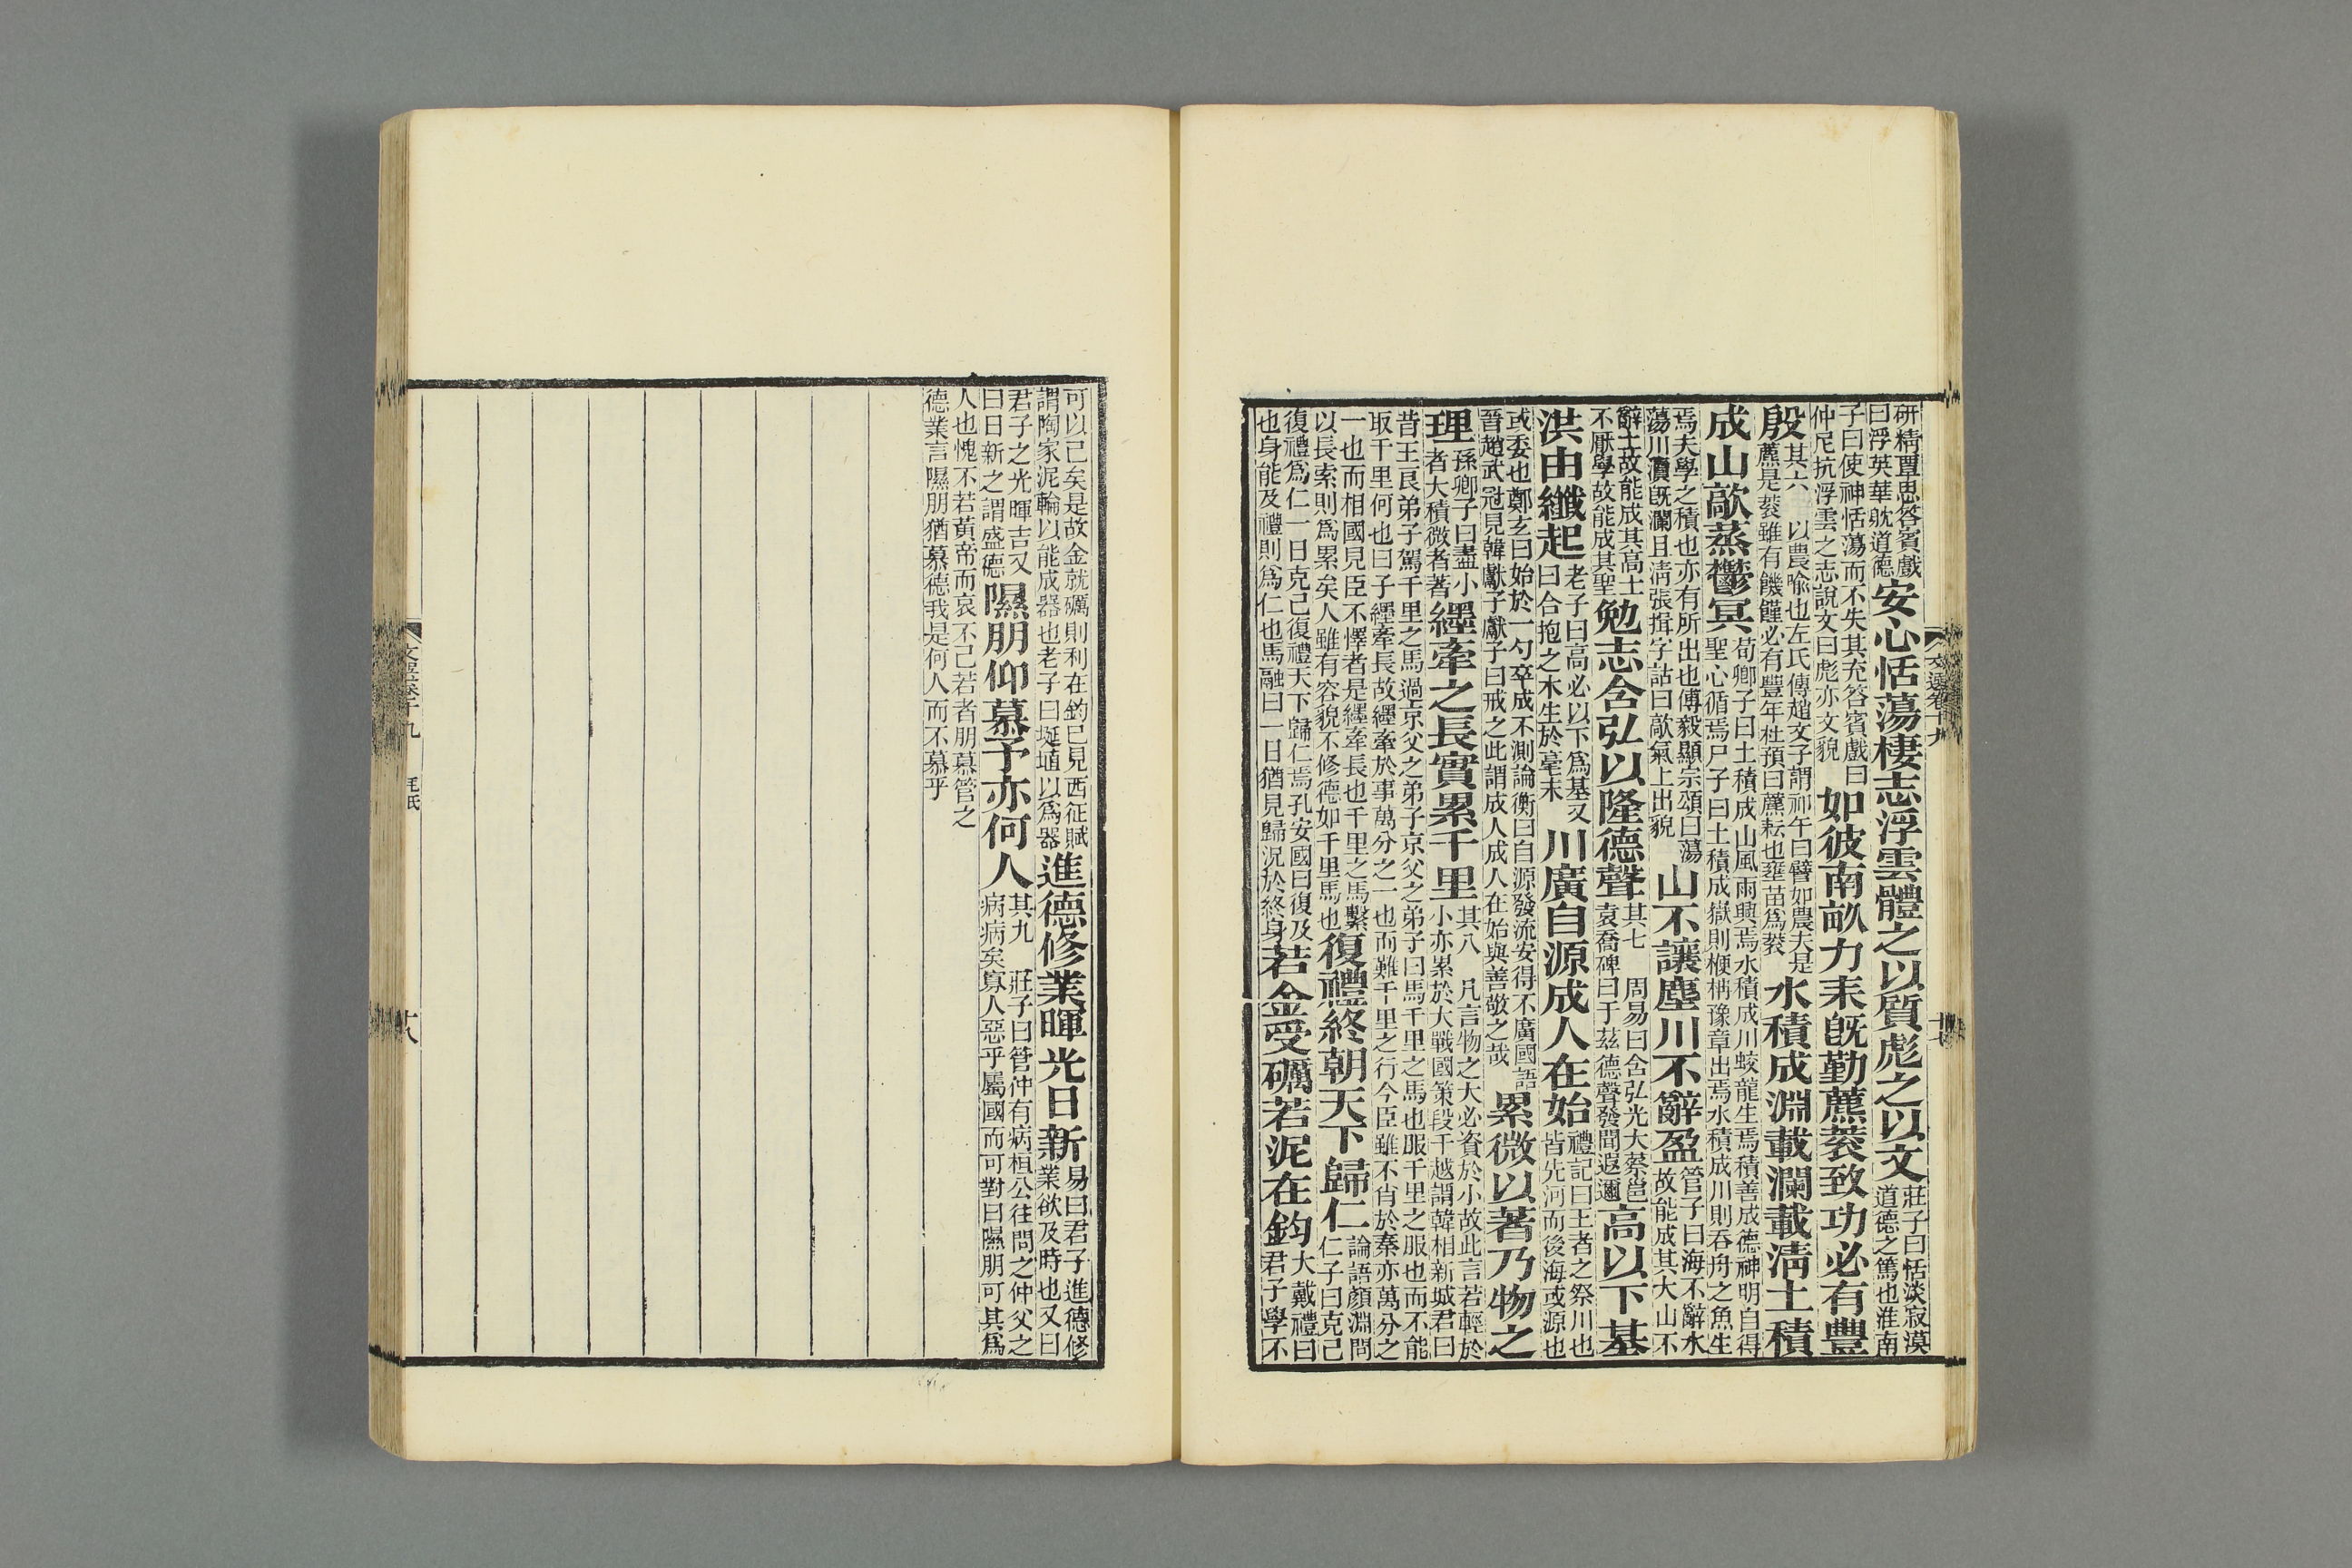 文選卷十九
十七
研精覃思荅賓戲曰浮英華躭道德安心恬蕩棲志浮雲體之以質彪之以文莊子曰恬淡寂漠道德之篤也淮南
子曰使神恬蕩而不失其充荅賓戲曰仲尼抗浮雲之志說文曰彪亦文貌如彼南畝力耒旣勤藨蔉致功必有豐
殷其六 以農喻也左氏傳趙文子謂祁午曰譬如農夫是藨是蔉雖有饑饉必有豐年杜預曰藨耘也壅苗爲蔉水積成淵載瀾載淸土積
成山歊蒸鬱冥荀卿子曰土積成山風雨興焉水積成川蛟龍生焉積善成德神明自得聖心循焉尸子曰土積成嶽則楩柟豫章出焉水積成川則吞舟之魚生
焉夫學之積也亦有所出也傅毅顯宗頌曰蕩蕩川瀆旣瀾且淸張揖字詁曰歊氣上出貌山不讓塵川不辭盈管子曰海不辭水故能成其大山不
辭土故能成其高士不厭學故能成其聖勉志含弘以隆德聲其七 周易曰含弘光大蔡邕袁喬碑曰于茲德聲發聞遐邇高以下基
洪由纖起老子曰高必以下爲基又曰合抱之木生於毫末川廣自源成人在始禮記曰王者之祭川也皆先河而後海或源也
或委也鄭玄曰始於一勺卒成不測論衡曰自源發流安得不廣國語晉趙武冠見韓獻子獻子曰戒之此謂成人成人在始與善敬之哉累微以著乃物之
理孫卿子曰盡小者大積微者著纆牽之長實累千里其八 凡言物之大必資於小故此言若輕於小亦累於大戰國策段干越謂韓相新城君曰
昔王良弟子駕千里之馬過京父之弟子京父之弟子曰馬千里之馬也服千里之服也而不能取千里何也曰子纆牽長故纆牽於事萬分之一也而難千里之行今臣雖不肖於秦亦萬分之
一也而相國見臣不懌者是纆牽長也千里之馬繫以長索則爲累矣人雖有容貌不修德如千里馬也復禮終朝天下歸仁論語顏淵問仁子曰克己
復禮爲仁一日克己復禮天下歸仁焉孔安國曰復及也身能及禮則爲仁也馬融曰一日猶見歸況於終身若金受礪若泥在鈞大戴禮曰君子學不
可以已矣是故金就礪則利在鈞已見西征賦謂陶家泥輪以能成器也老子曰埏埴以爲器進德修業暉光日新易曰君子進德修業欲及時也又曰
君子之光暉吉又曰日新之謂盛德隰朋仰慕予亦何人其九 莊子曰管仲有病桓公往問之仲父之病病矣寡人惡乎屬國而可對曰隰朋可其爲
人也愧不若黃帝而哀不己若者朋慕管之德業言隰朋猶慕德我是何人而不慕乎
文選卷十九
毛氏
十八